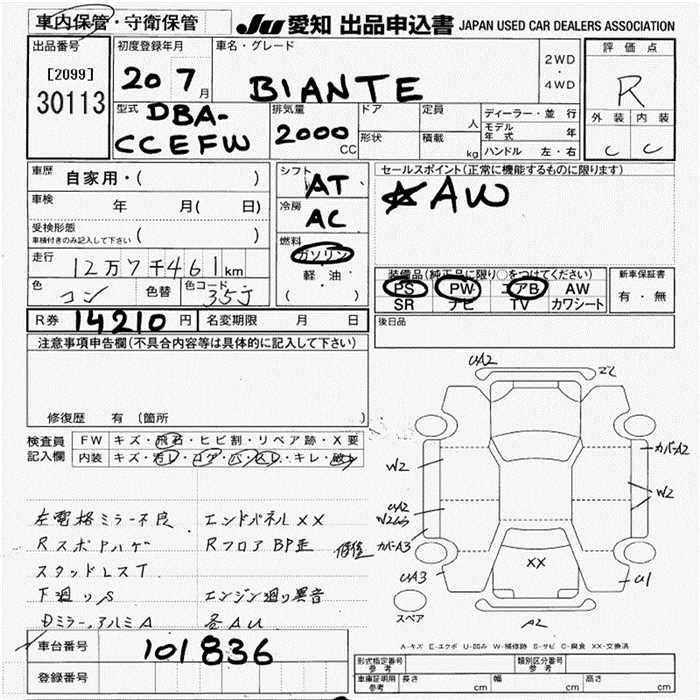 車内保管・守衛保管
JU 愛知 出品申込書 JAPAN USED CAR DEALERS ASSOCIATION
出品番号
[2099]
30113
初度登録年月
20 7月
車名・グレード
BIANTE
2WD
・
4WD
評価点
R
外装 内装
C C
型式
DBA-
CCEFW
排気量
2000
CC
ドア
形状
定員
人
積載
kg
ディーラー・並行
モデル年式 年
ハンドル 左・右
車歴 自家用・( )
車検 年 月( 日)
受検形態
車検付きのみ記入して下さい ( )
走行
12万7千461km
色 コン 色替 色コード 35J
シフト
AT
冷房
AC
燃料
ガソリン
・
軽油
( )
セールスポイント(正常に機能するものに限ります)
☆AW
装備品(純正品に限り○をつけてください)
PS PW エアB AW
SR ナビ TV カワシート
新車保証書
有・無
R券 14210円 名変期限 月 日
後日品
注意事項申告欄(不具合内容等は具体的に記入して下さい)
修復歴 有 (箇所 )
検査員
記入欄
FW キズ・飛石・ヒビ割・リペア跡・X要
内装 キズ・汚レ・コゲ・パンクレ・キレ・
左電格ミラー不良 エンドパネルXX
Rスポアハゲ Rフロア BP歪 修復
スタッドレスT
下廻りS エンジン廻り異音
Dミラー,アルミA 各AU
UA2
W2
UA2
W2
カバーA3
UA3
カバーA2
W2
U1
XX
A2
スペア
A-キズ E-エクボ U-凹み W-補修跡 S-サビ C-腐食 XX-交換済
車台番号 101836
登録番号
形式指定番号
参考
類別区分番号
参考
車庫証明用
参考
長さ cm 幅 cm 高さ cm